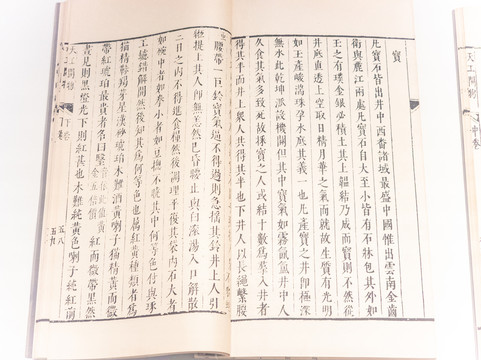 寶
凡寶石皆出井中西番諸域最盛中國惟出雲南金齒
衛與麗江兩處凡寶石自大至小皆有石牀包其外如
玉之有璞金銀必積土其上韞結乃成而寶則不然從
井底直透上空取日精月華之氣而就故生質有光明
如玉產峻湍珠孕水底其義一也凡產寶之井即極深
無水此乾坤派設機關但其中寶氣如霧氤氳井中人
久食其氣多致死故採寶之人或結十數爲羣入井者
得其半而井上衆人共得其半也下井人以長繩繫腰
腰帶一巨鈴寶氣逼不得過則急搖其鈴井上人引
縆提上其人即無恙然已昏瞢止與白滾湯入口解散
三日之內不得進食糧然後調理平復其袋內石大者
如碗中者如拳小者如豆總不曉其中何等色付與琢
工鑢錯解開然後知其爲何等色也屬紅黃種類者爲
猫精靺羯芽星漢砂琥珀木難酒黃喇子猫精黃而微
帶紅琥珀最貴者名曰瑿音依此值黃金五倍價紅而微帶黑然
晝見則黑燈光下則紅甚也木難純黃色喇子純紅前
天工開物 下卷 五八
天工開物 中卷